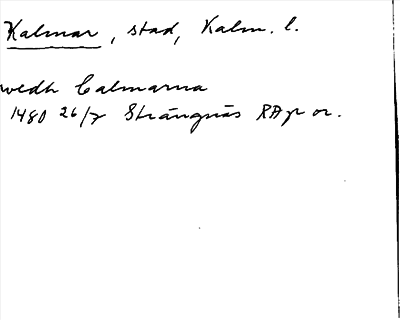 Kalmar, stad, Kalm. l.
wedh Calmarna
1480 26/7 Strängnäs RAp or.